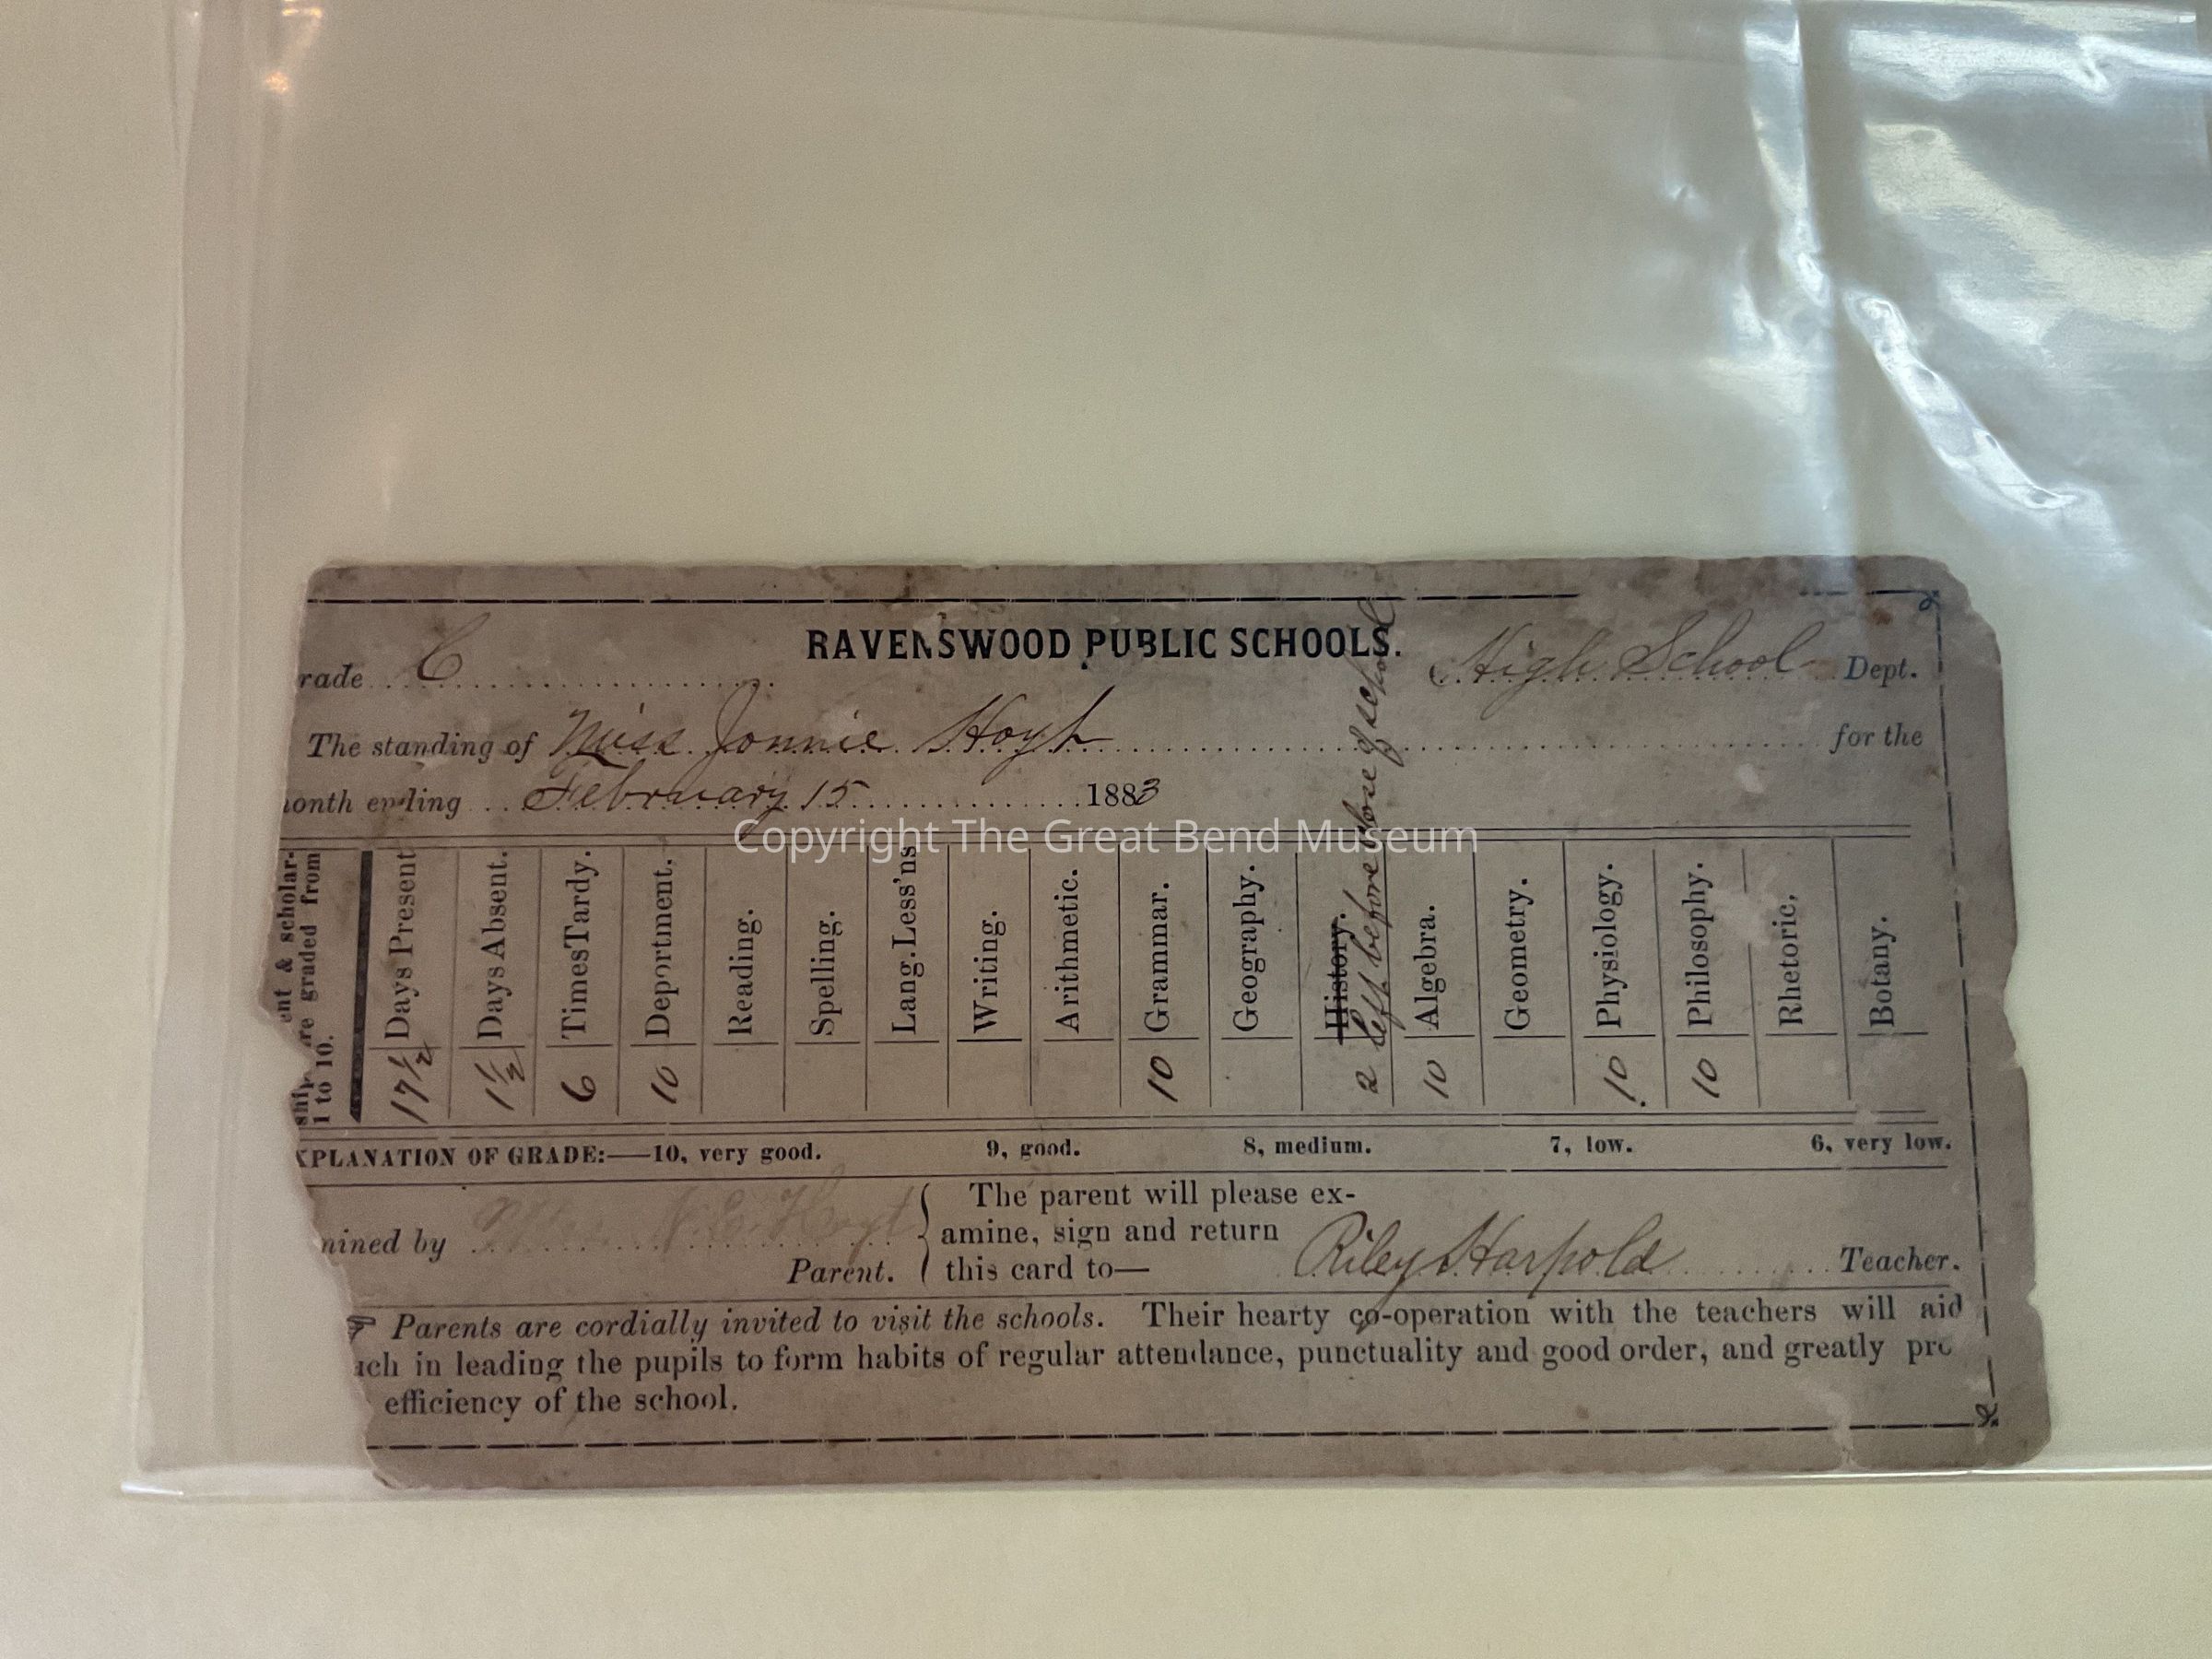 RAVENSWOOD PUBLIC SCHOOLS.
rade C High School Dept.
The standing of Miss Jonnie Hoyt for the
onth ending February 15 1883
Copyright The Great Bend Museum
ent & scholar-
ship re graded from
1 to 10.
Days Present 17 1/2
Days Absent. 1 1/2
Times Tardy. 6
Deportment. 10
Reading.
Spelling.
Lang. Less'ns
Writing.
Arithmetic.
Grammar. 10
Geography.
History.
2 left before close of school
Algebra. 10
Geometry.
Physiology. 10
Philosophy. 10
Rhetoric,
Botany.
XPLANATION OF GRADE:—10, very good. 9, good. 8, medium. 7, low. 6, very low.
mined by Mrs. Hoyt
Parent.
The parent will please ex-
amine, sign and return
this card to—
Riley Harpold Teacher.
Parents are cordially invited to visit the schools. Their hearty co-operation with the teachers will aid
uch in leading the pupils to form habits of regular attendance, punctuality and good order, and greatly pro
efficiency of the school.